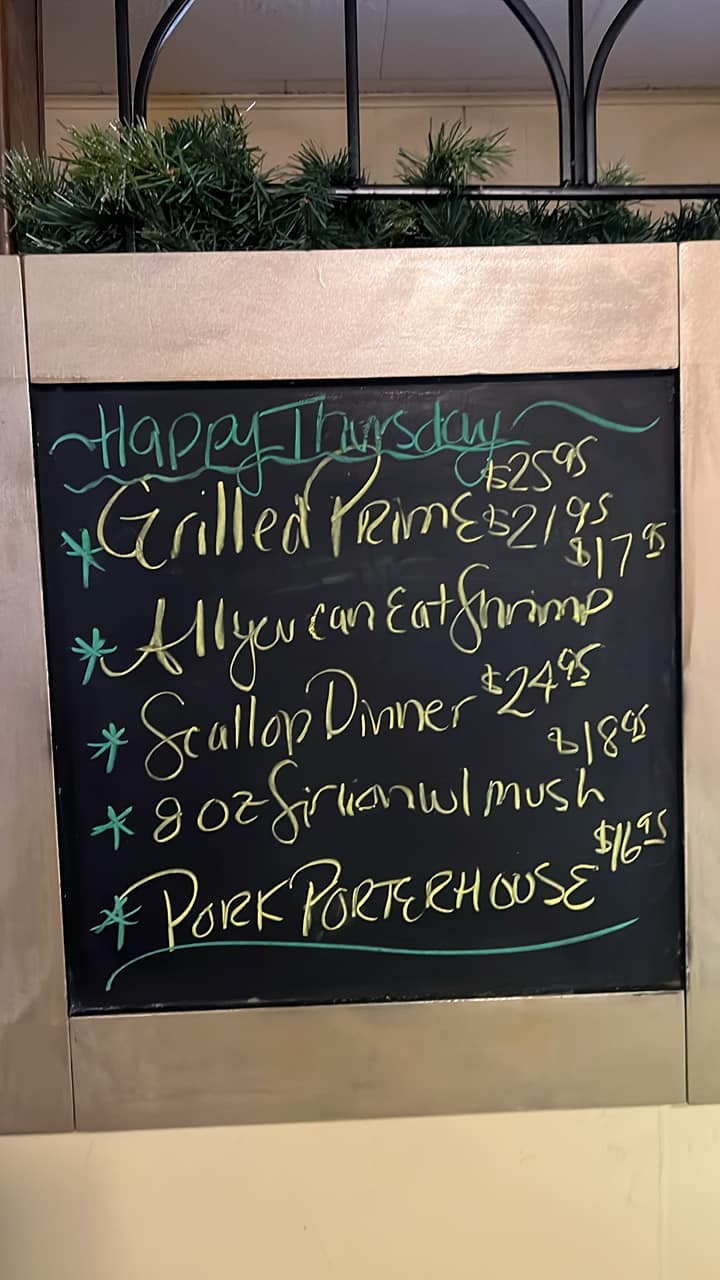 Happy Thursday
$25⁹⁵
* Grilled Prime $21⁹⁵
$17⁹⁵
* All you can Eat Shrimp
* Scallop Dinner $24⁹⁵
$18⁹⁵
* 8 oz Sirlion w/ mush
$16⁹⁵
* PORK PORTERHOUSE